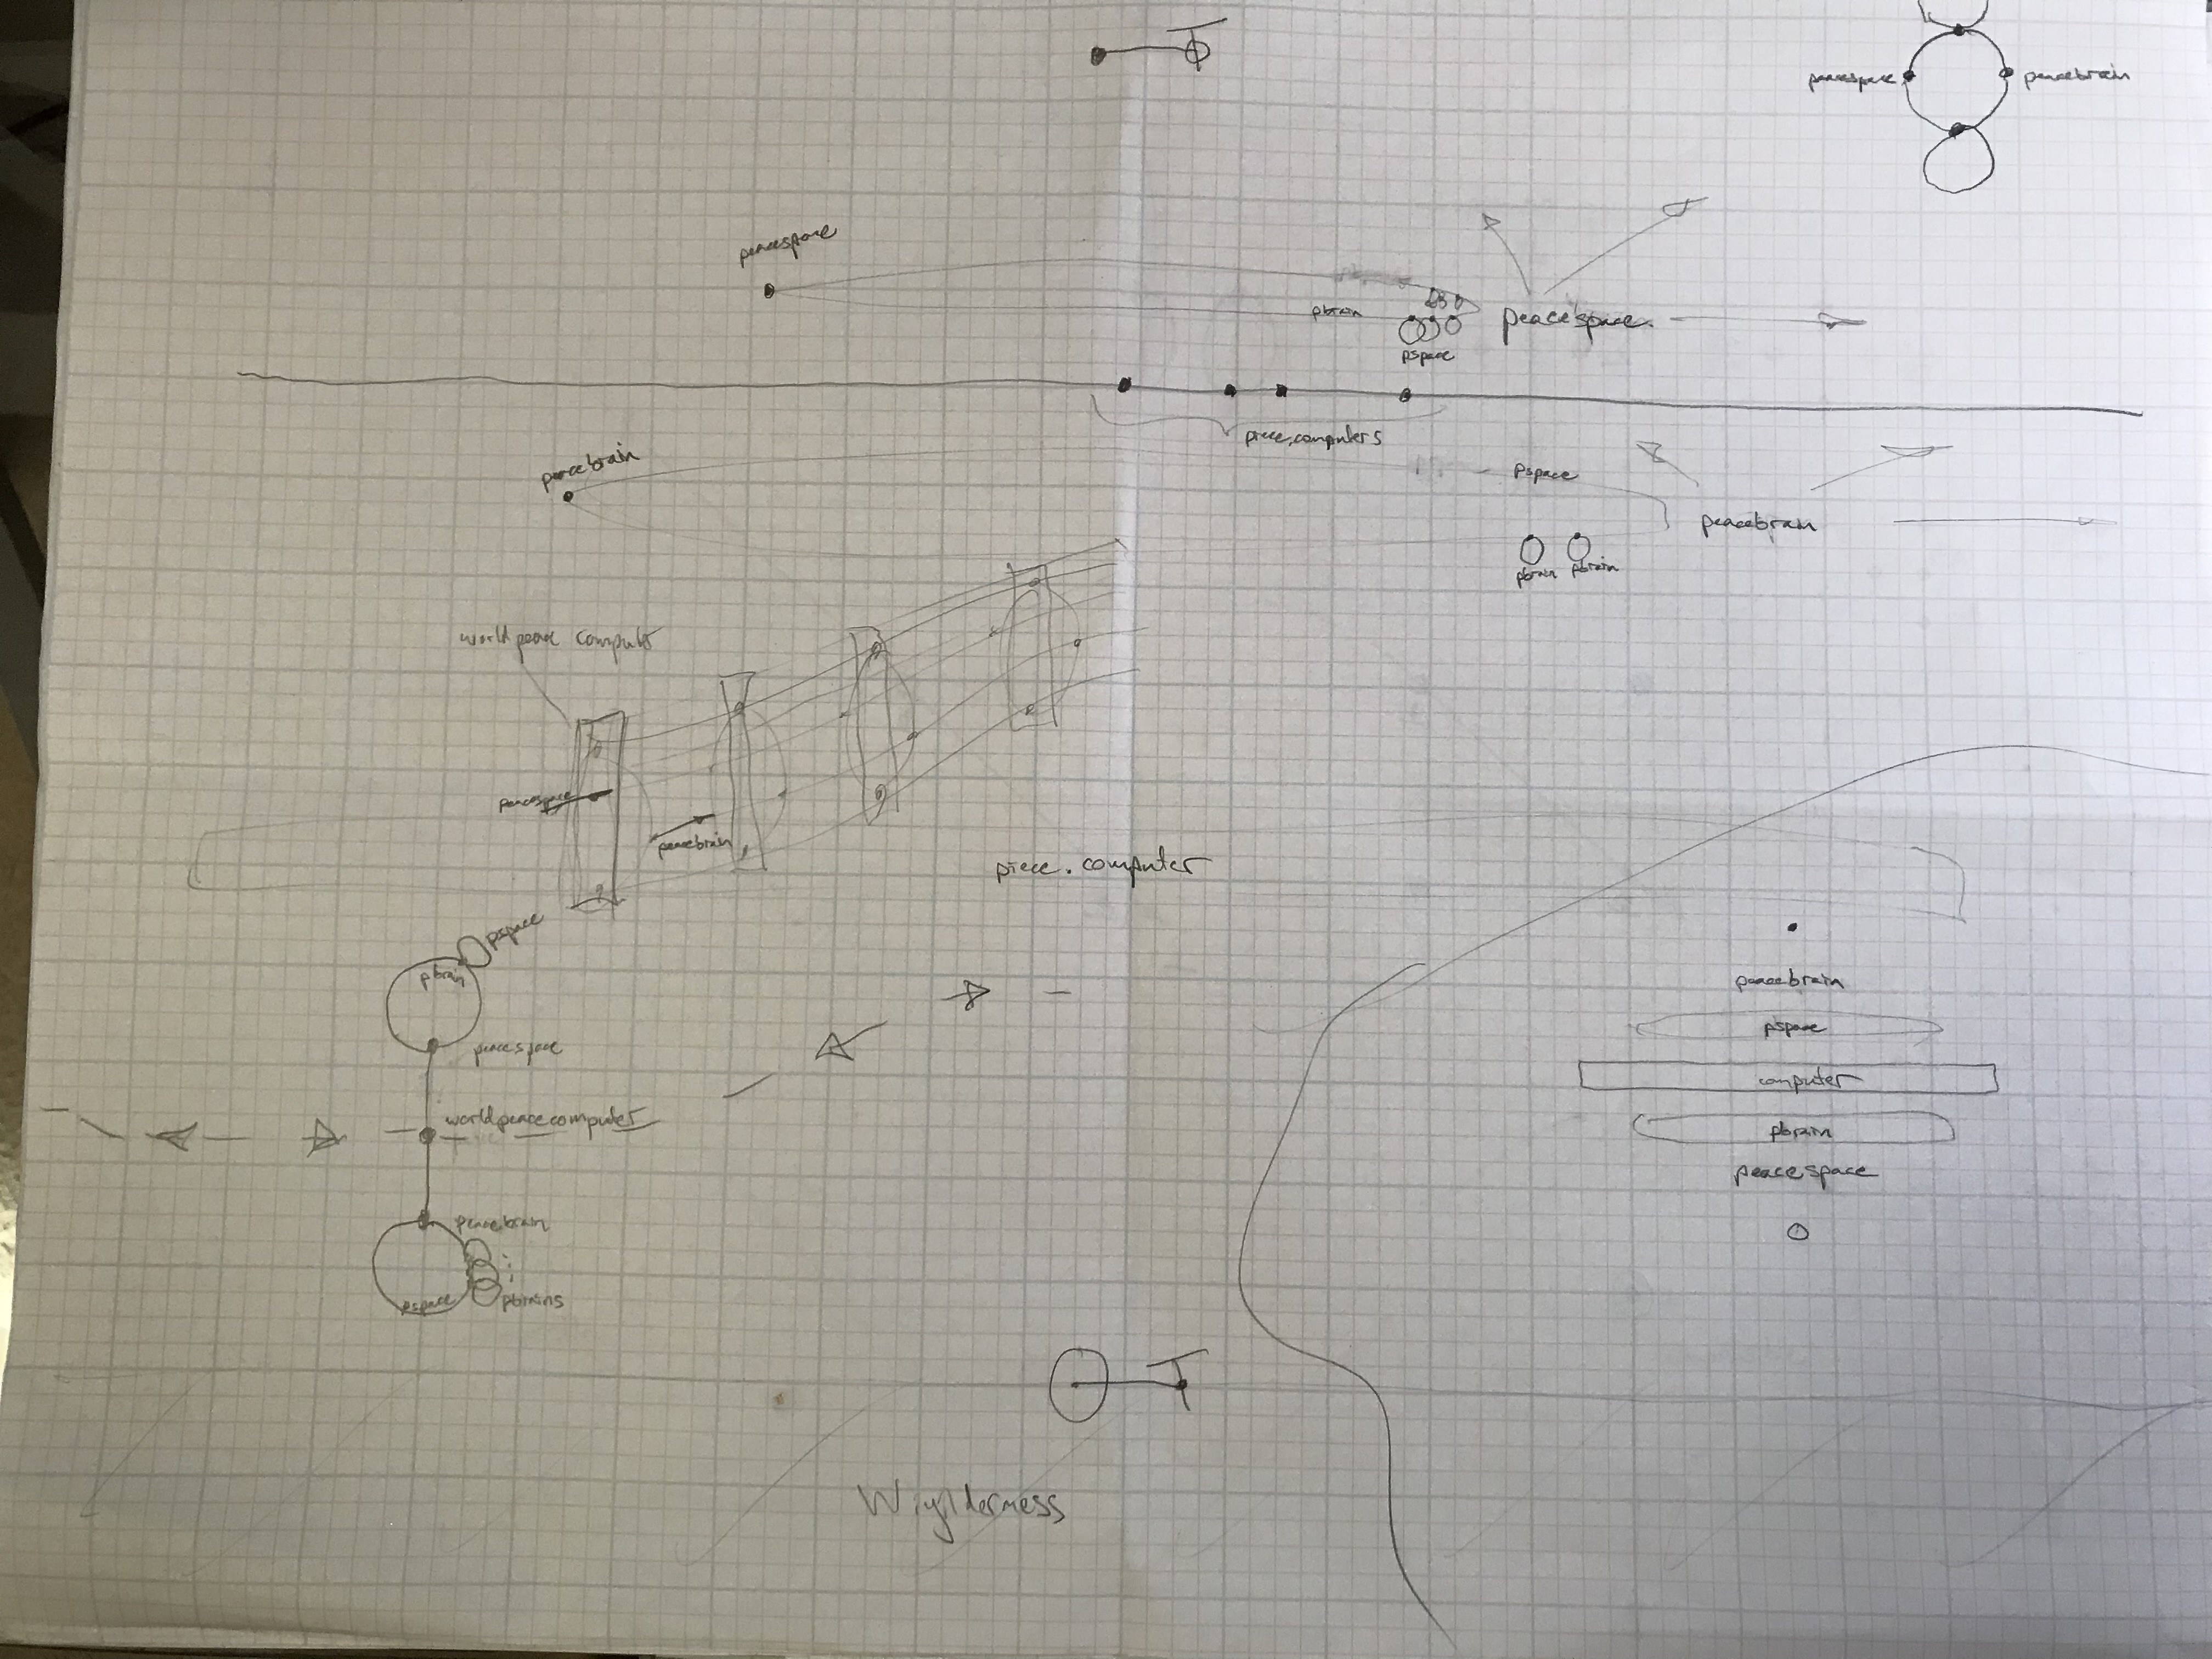 peacespace
peacebrain
peacespace
pbrain
peacespace
pspace
piece.computers
peacebrain
pspace
peacebrain
pbrain
pbrain
worldpeace computer
peacespace
peacebrain
piece.computer
pspace
pbrain
peacespace
worldpeacecomputer
peacebrain
pspace
pbrains
peacebrain
pspace
computer
pbrain
peacespace